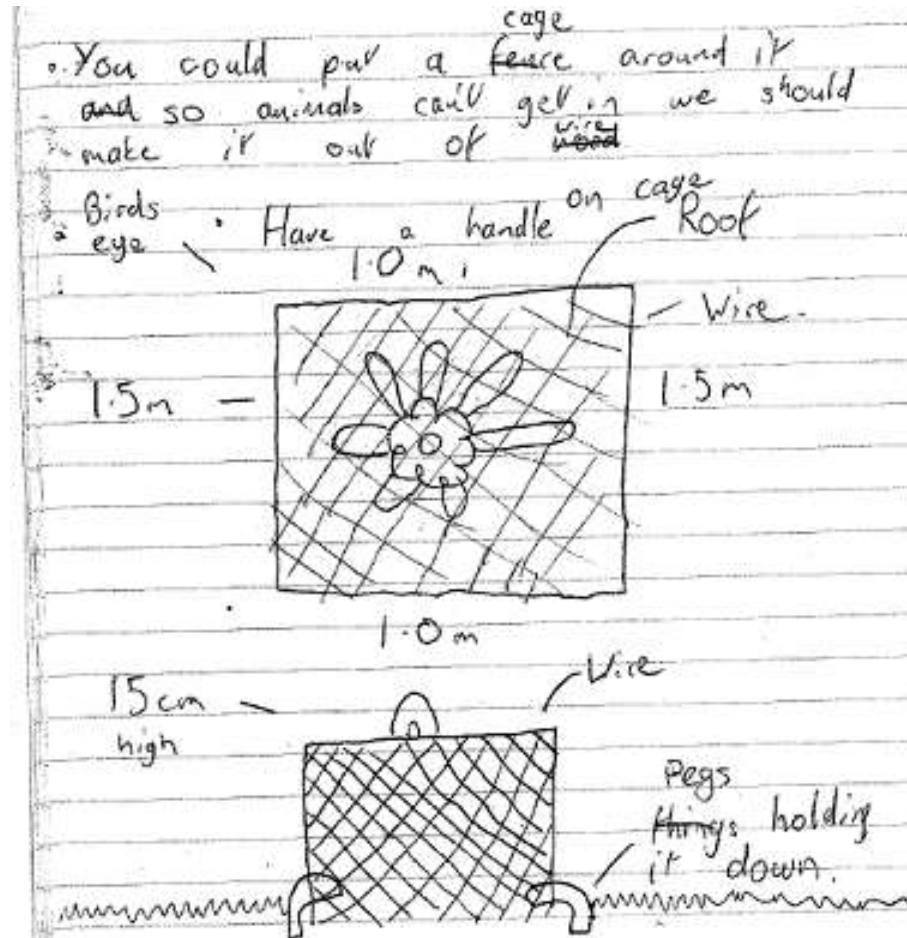 cage
• You could put a fence around it
and so animals can't get in we should
wire
make it out of wood
Birds eye
• Have a handle on cage
Roof
1.0 m
Wire
1.5m
1.5m
1.0m
Wire
15cm high
Pegs
things holding
it down.